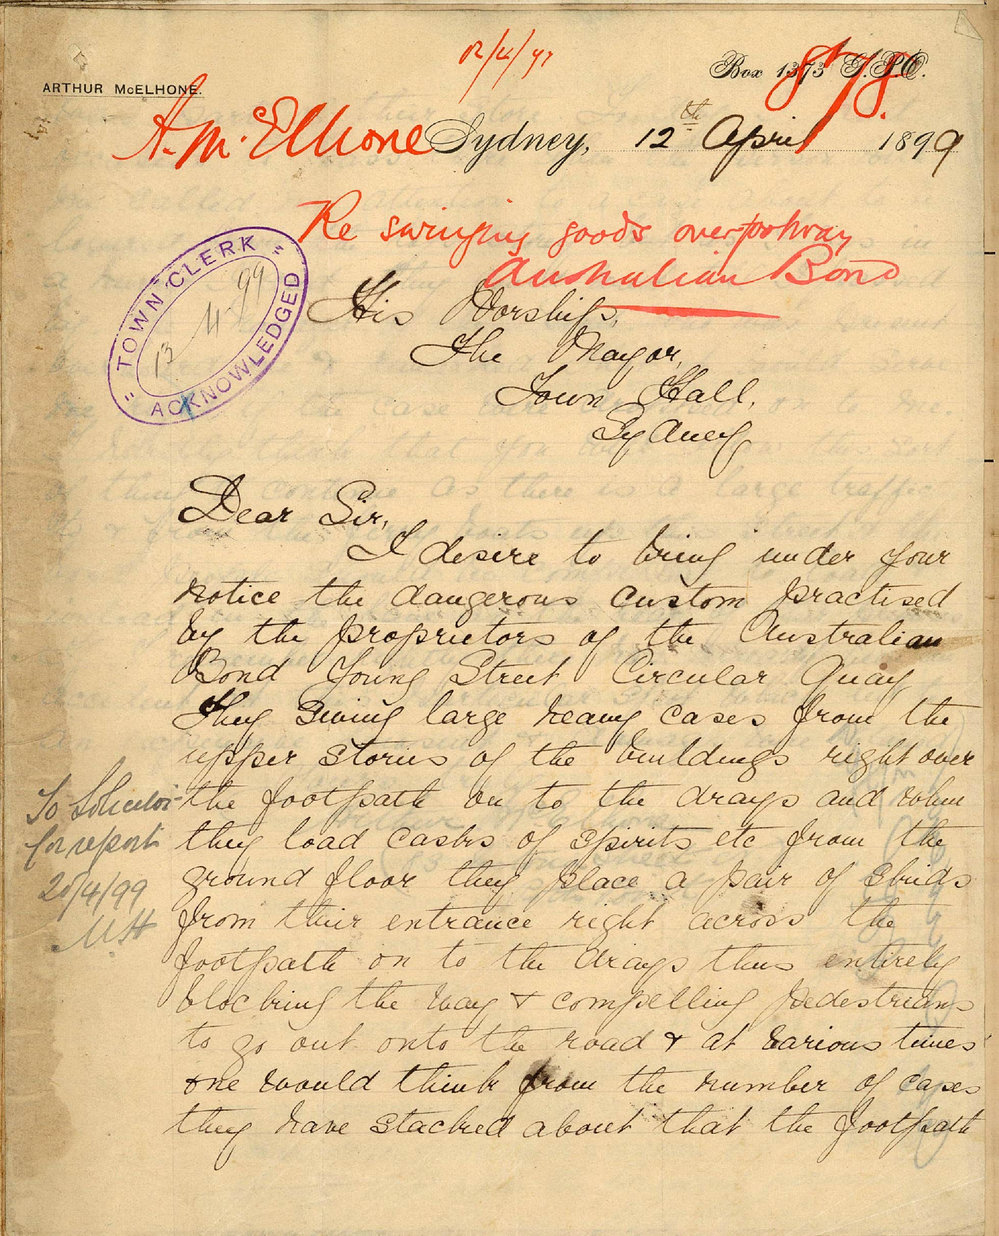 12/4/99
ARTHUR McELHONE.
Box 1373 G.P.O.
878.
A. McElhone
Sydney, 12th April 1899
Re swinging goods over pathway
Australian Bond
"TOWN CLERK"
13 4 99
ACKNOWLEDGED
His Worship,
The Mayor,
Town Hall,
Sydney
Dear Sir,
I desire to bring under your
notice the dangerous custom practised
by the proprietors of the Australian
Bond Young Street Circular Quay
They swing large heavy cases from the
upper stories of the buildings right over
the footpath on to the drays and when
they load casks of spirits etc from the
ground floor they place a pair of skids
from their entrance right across the
footpath on to the drays thus entirely
blocking the way & compelling pedestrians
to go out onto the road & at various times
one would think from the number of cases
they have stacked about that the footpath
To Solicitor
for report
20/4/99
MH